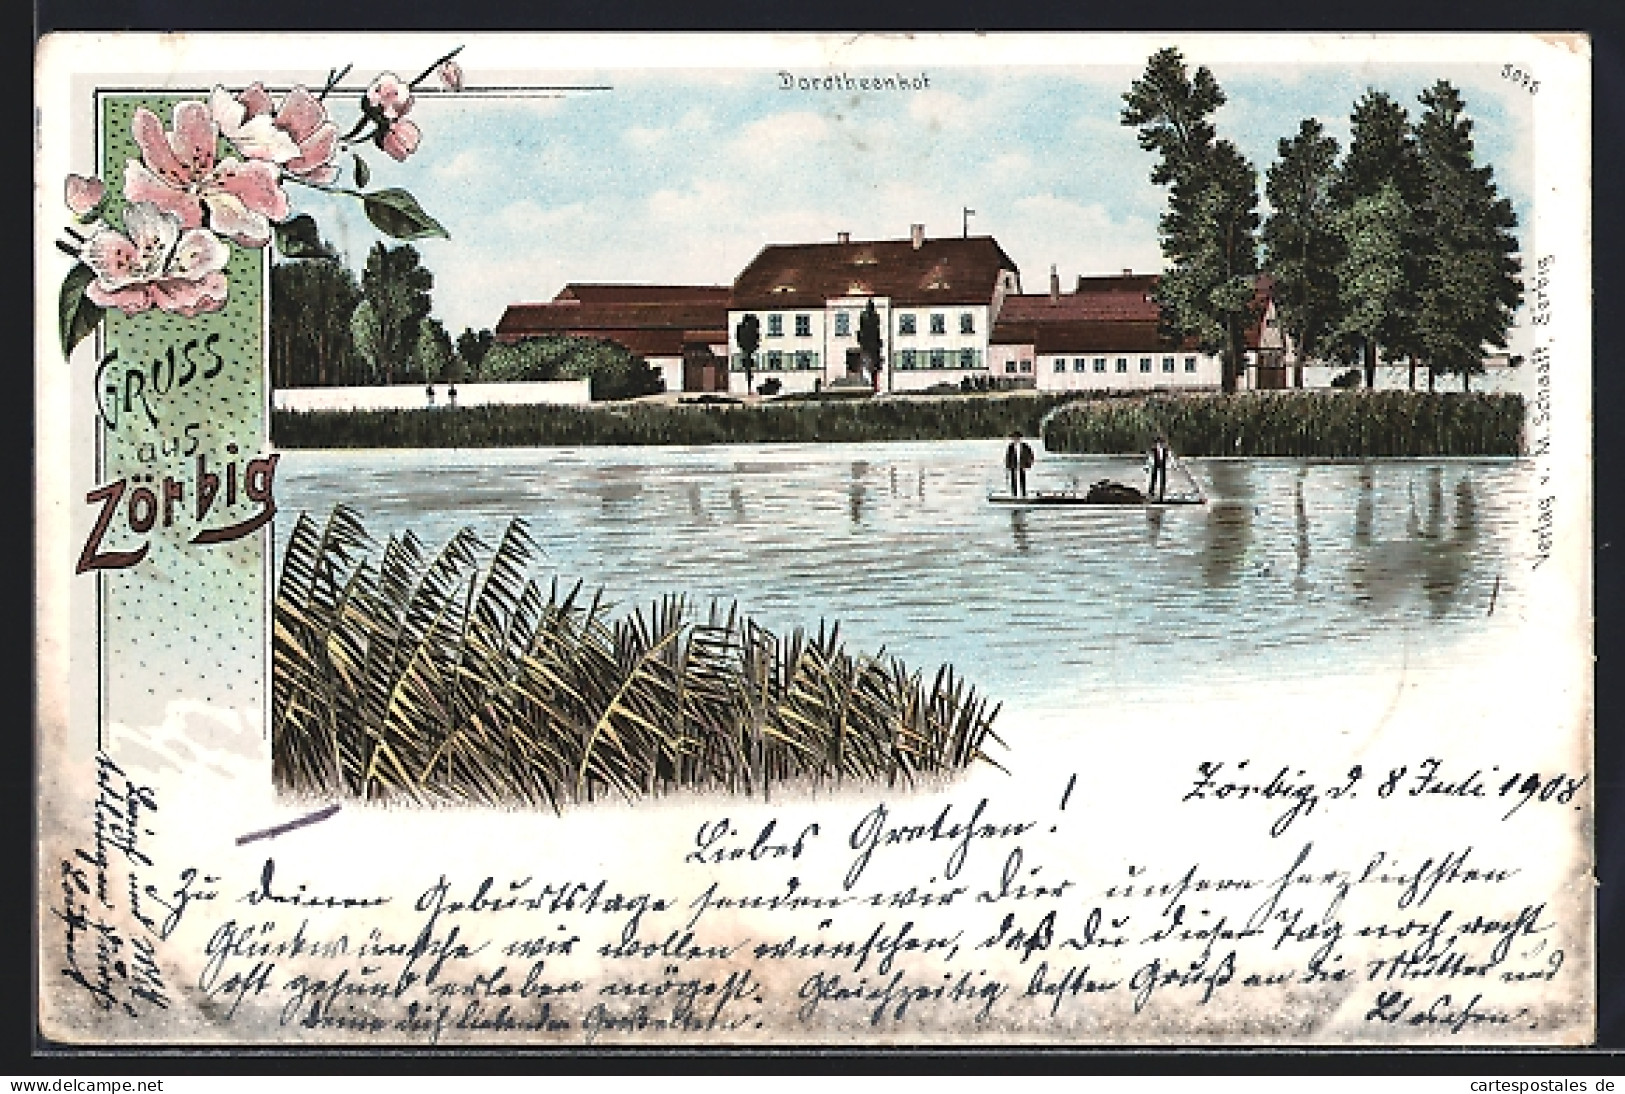 Dorotheenhof
5075
GRUSS
aus
Zörbig
Verlag v. M. Schaaff, Zörbig
Zörbig, d. 8 Juli 1908.
Liebes Gretchen!
Zu deinem Geburtstage senden wir Dier unsere herzlichsten
Glückwünsche wir wollen wünschen, daß Du dieser Tag noch recht
oft gesund erleben mögest. Gleichzeitig besten Gruß an die Mutter und
deine dich liebenden Großeltern.
cartespostales de
delcampe.net/en_US